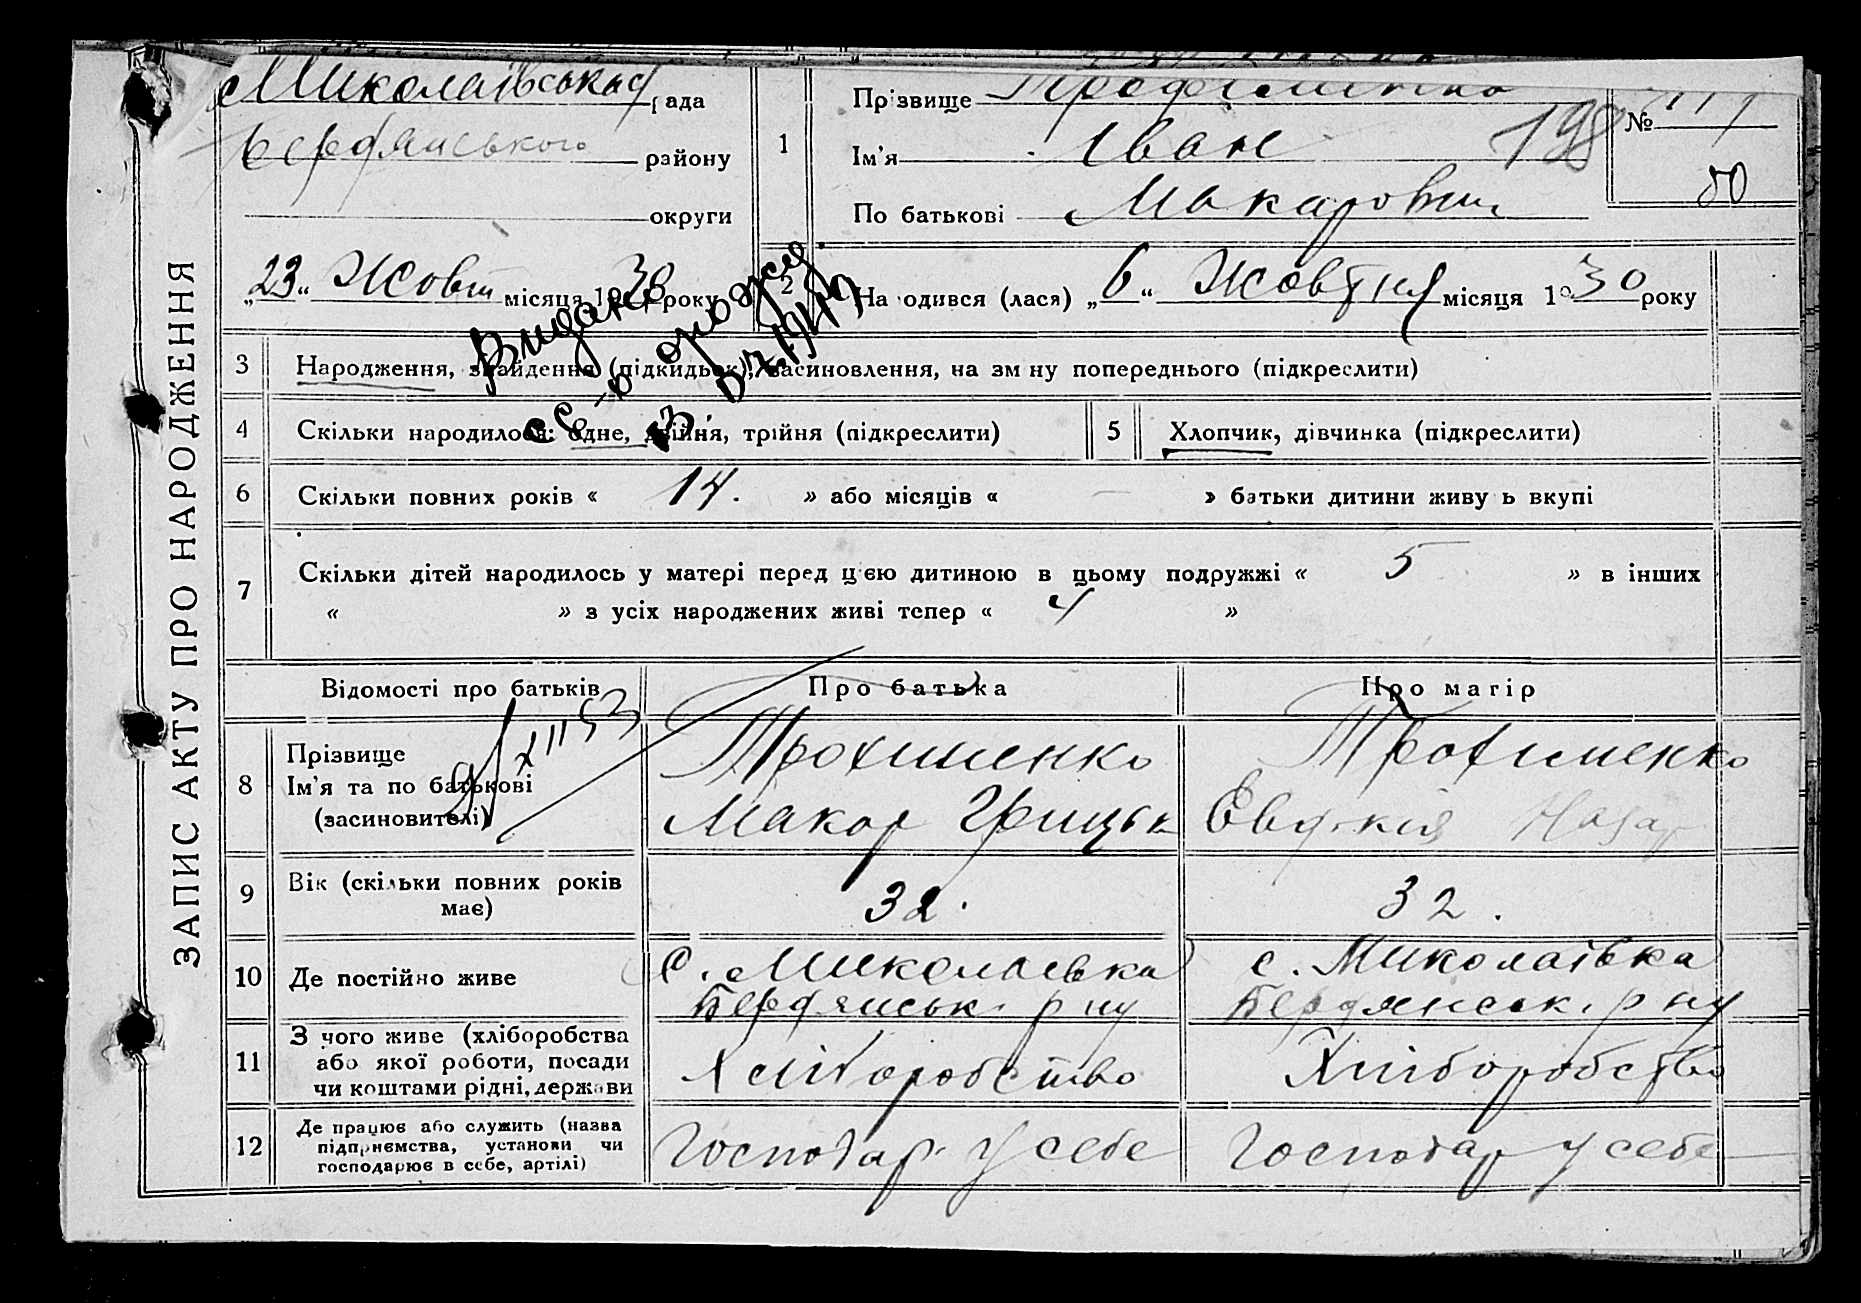 ЗАПИС АКТУ ПРО НАРОДЖЕННЯ
Миколаївська рада
Бердянського району
округи
1
Прізвище
Ім'я Іван
По батькові Макарович
198
№
80
„23“ Жовт місяця 1930 року
2
Народився (лася) „6“ Жовтня місяця 1930 року
Видано
св-о о рожд
1943
3
Народження, знайдення (підкидьок), засиновлення, на зміну попереднього (підкреслити)
4
Скільки народилося: одне, двійня, трійня (підкреслити)
5
Хлопчик, дівчинка (підкреслити)
6
Скільки повних років « 14. » або місяців « — » батьки дитини живуть вкупі
7
Скільки дітей народилось у матері перед цією дитиною в цьому подружжі « 5 » в інших
« » з усіх народжених живі тепер « 4 »
Відомості про батьків
Про батька
Про матір
XII 53
8
Прізвище
Ім'я та по батькові
(засиновителі)
Трохименко
Макар Грицьк
Трохименко
Евдокія Назар
9
Вік (скільки повних років
має)
32.
32.
10
Де постійно живе
с. Миколаївка
Бердянськ. р ну
с. Миколаївка
Бердянськ. р ну
11
З чого живе (хліборобства
або якої роботи, посади
чи коштами рідні, держави
Хліборобство
Хліборобство
12
Де працює або служить (назва
підприємства, установи чи
господарює в себе, артілі)
Господар. у себе
Господар у себе